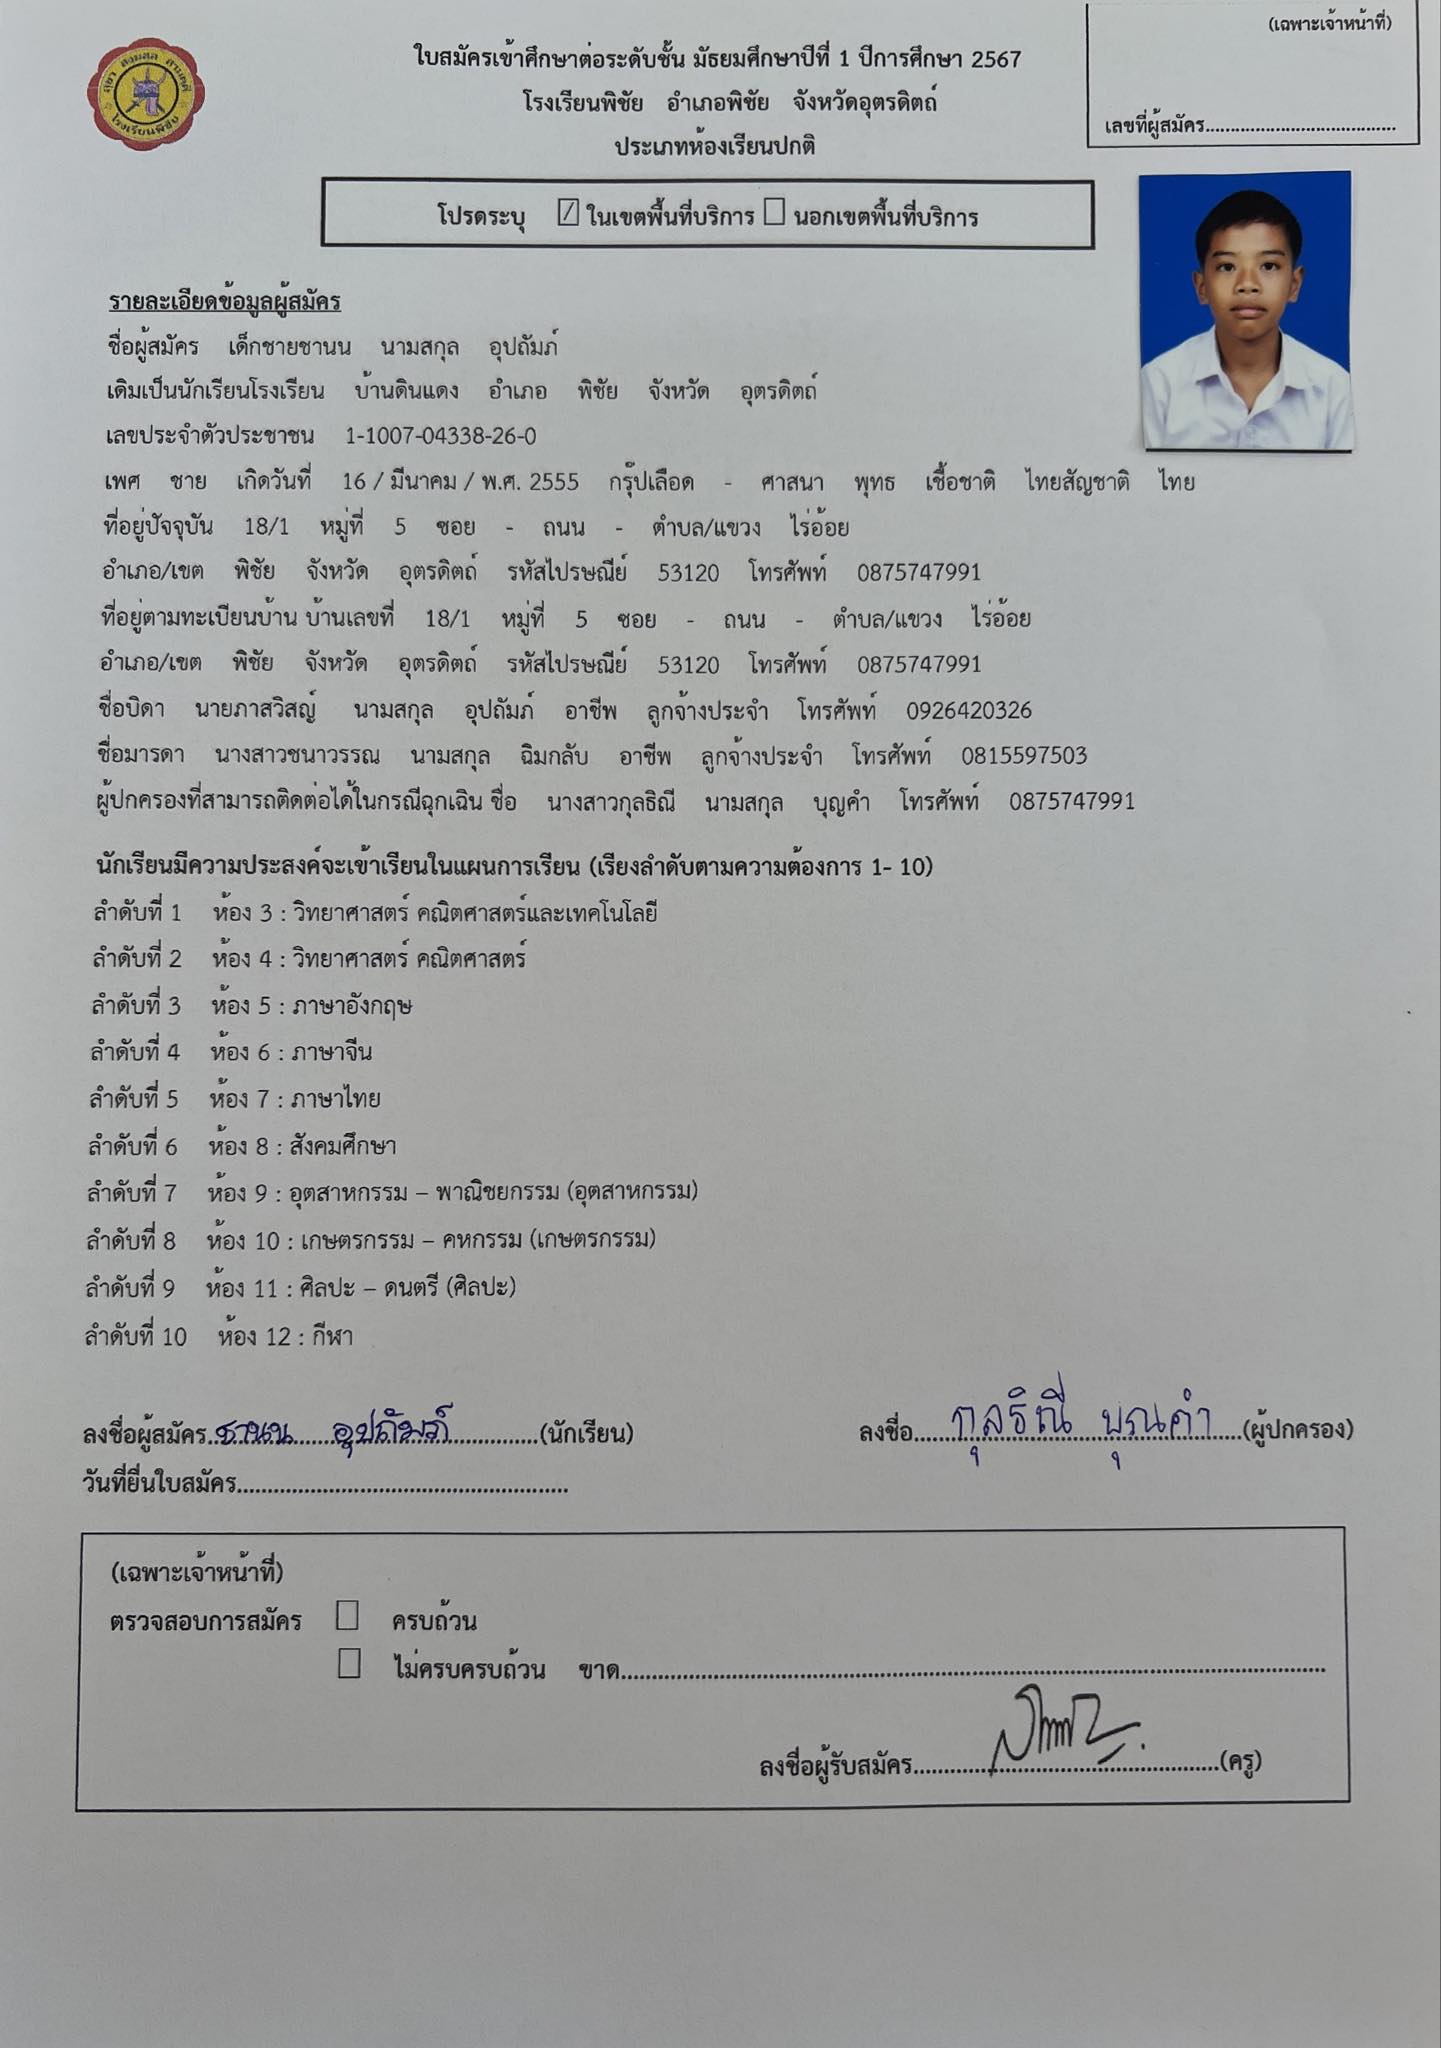 (เฉพาะเจ้าหน้าที่)
ใบสมัครเข้าศึกษาต่อระดับชั้น มัธยมศึกษาปีที่ 1 ปีการศึกษา 2567
โรงเรียนพิชัย อำเภอพิชัย จังหวัดอุตรดิตถ์
เลขที่ผู้สมัคร......................................
ประเภทห้องเรียนปกติ
โรงเรียนพิชัย
โปรดระบุ ในเขตพื้นที่บริการ นอกเขตพื้นที่บริการ
รายละเอียดข้อมูลผู้สมัคร
ชื่อผู้สมัคร เด็กชายชานน นามสกุล อุปถัมภ์
เดิมเป็นนักเรียนโรงเรียน บ้านดินแดง อำเภอ พิชัย จังหวัด อุตรดิตถ์
เลขประจำตัวประชาชน 1-1007-04338-26-0
เพศ ชาย เกิดวันที่ 16 / มีนาคม / พ.ศ. 2555 กรุ๊ปเลือด - ศาสนา พุทธ เชื้อชาติ ไทยสัญชาติ ไทย
ที่อยู่ปัจจุบัน 18/1 หมู่ที่ 5 ซอย - ถนน - ตำบล/แขวง ไร่อ้อย
อำเภอ/เขต พิชัย จังหวัด อุตรดิตถ์ รหัสไปรษณีย์ 53120 โทรศัพท์ 0875747991
ที่อยู่ตามทะเบียนบ้าน บ้านเลขที่ 18/1 หมู่ที่ 5 ซอย - ถนน - ตำบล/แขวง ไร่อ้อย
อำเภอ/เขต พิชัย จังหวัด อุตรดิตถ์ รหัสไปรษณีย์ 53120 โทรศัพท์ 0875747991
ชื่อบิดา นายภาสวิสญ์ นามสกุล อุปถัมภ์ อาชีพ ลูกจ้างประจำ โทรศัพท์ 0926420326
ชื่อมารดา นางสาวชนาวรรณ นามสกุล ฉิมกลับ อาชีพ ลูกจ้างประจำ โทรศัพท์ 0815597503
ผู้ปกครองที่สามารถติดต่อได้ในกรณีฉุกเฉิน ชื่อ นางสาวกุลธิณี นามสกุล บุญคำ โทรศัพท์ 0875747991
นักเรียนมีความประสงค์จะเข้าเรียนในแผนการเรียน (เรียงลำดับตามความต้องการ 1- 10)
ลำดับที่ 1 ห้อง 3 : วิทยาศาสตร์ คณิตศาสตร์และเทคโนโลยี
ลำดับที่ 2 ห้อง 4 : วิทยาศาสตร์ คณิตศาสตร์
ลำดับที่ 3 ห้อง 5 : ภาษาอังกฤษ
ลำดับที่ 4 ห้อง 6 : ภาษาจีน
ลำดับที่ 5 ห้อง 7 : ภาษาไทย
ลำดับที่ 6 ห้อง 8 : สังคมศึกษา
ลำดับที่ 7 ห้อง 9 : อุตสาหกรรม – พาณิชยกรรม (อุตสาหกรรม)
ลำดับที่ 8 ห้อง 10 : เกษตรกรรม – คหกรรม (เกษตรกรรม)
ลำดับที่ 9 ห้อง 11 : ศิลปะ – ดนตรี (ศิลปะ)
ลำดับที่ 10 ห้อง 12 : กีฬา
ลงชื่อผู้สมัคร ชานน อุปถัมภ์ (นักเรียน) ลงชื่อ กุลธิณี บุญคำ (ผู้ปกครอง)
วันที่ยื่นใบสมัคร......................................................
(เฉพาะเจ้าหน้าที่)
ตรวจสอบการสมัคร ครบถ้วน
ไม่ครบครบถ้วน ขาด......................................................
ลงชื่อผู้รับสมัคร......................................................(ครู)